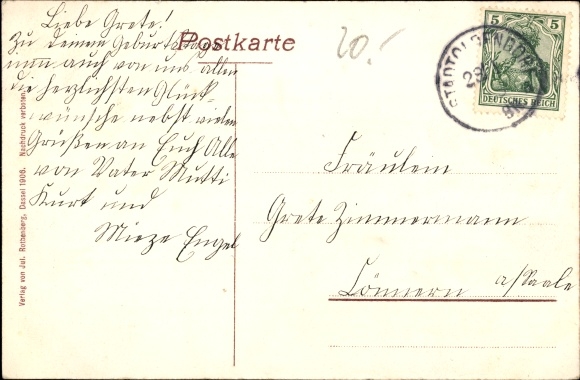 Liebe Grete!
Zu deinem Geburtstage
nun auch von uns allen
die herzlichsten Glück-
wünsche nebst vielen
Grüßen an Euch Alle
von Vater Mutti
Kurt und
Mieze Engel
Postkarte
20.-
5 5
DEUTSCHES REICH
STADTOLDENDORF
Fräulein
Grete Zimmermann
Cönnern a/Saale
Verlag von Jul. Rothenberg, Dassel 1906. Nachdruck verboten.